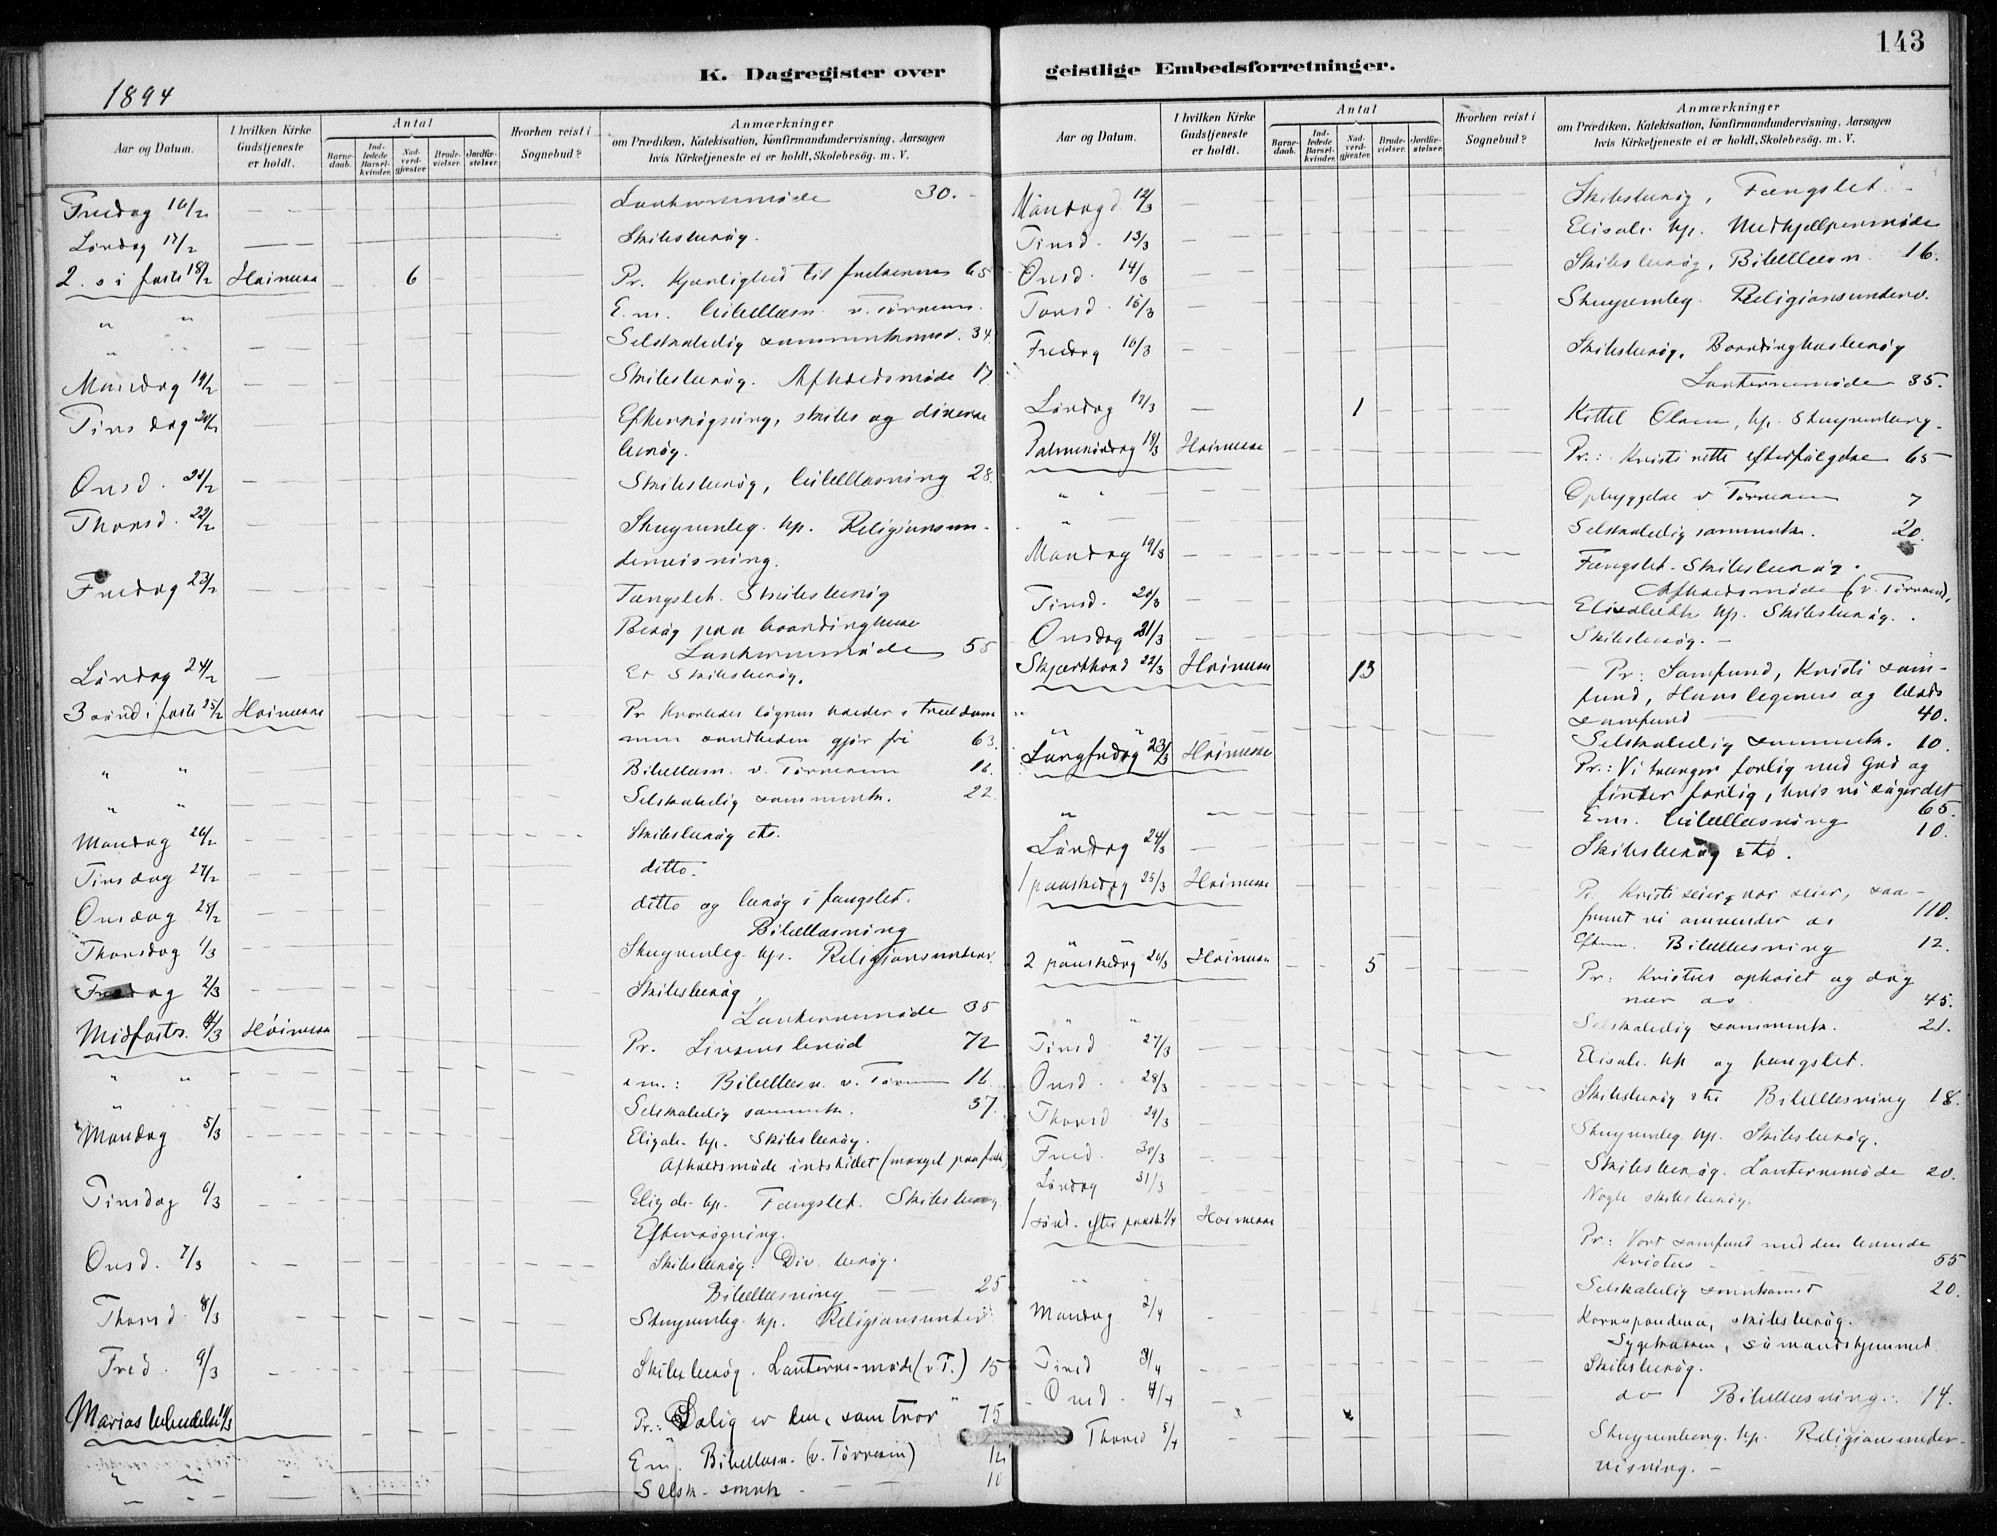 143
K. Dagregister over geistlige Embedsforretninger.
1894
Aar og Datum.
I hvilken Kirke Gudstjeneste er holdt.
Antal
Barnedaab.
Indledede Barselkvinder.
Nadverdgjæster.
Brudevielser.
Jordfæstelser.
Hvorhen reist i Sognebud?
Anmærkninger
om Prædiken, Katekisation, Konfirmandundervisning, Aarsagen
hvis Kirketjeneste ei er holdt, Skolebesög. m. V.
Fredag 16/2 Lanternemøde 30.
Lørdag 17/2 Skibsbesøg.
2. s i faste 18/2 Høimesse 6 Pr. Kjærlighed til frelseren 65
" " E.m. bibellæsn. v. Tørnesen.
" " Selskabelig sammenkomst. 34
Mandag 19/2 Skibsbesøg. Afholdsmøde 17
Tirsdag 20/2 Eftersøgning, skibs og diverse
besøg.
Onsd. 21/2 Skibsbesøg, bibellæsning 28.
Thorsd. 22/2 hp. Religionsun-
dervisning.
Fredag 23/2 Fængslet. Skibsbesøg
Besøg paa boardinghuse
Lanternemøde 55
Lørdag 24/2 Et Skibsbesøg.
3 sønd i faste 25/2 Høimesse Pr. Hvorledes løgnen holder i træl dom
men sandheden gjør fri 63.
" " Bibellæsn. v. Tørnesen 16.
" " Selskabelig sammenk. 22
Mandag 26/2 Skibsbesøg etc.
Tirsdag 27/2 ditto.
Onsdag 28/2 ditto og besøg i fængslet.
Bibellæsning
Thorsdag 1/3 hp. Religionsunderv.
Fredag 2/3 Skibsbesøg
Lanternemøde 35
Midfaste. 4/3 Høimesse Pr. Livsens brød 72
" " e.m.: Bibellæsn. v. Tørnesen 16
" Selskabelig sammenk. 37.
Mandag 5/3 Elizab. hp. Skibsbesøg.
Afholdsmøde indstillet (mangel paa folk)
Tirsdag 6/3 Elizab. hp. Fængslet. Skibsbesøg
Eftersøgning.
Onsd. 7/3 Skibsbesøg. Div. besøg.
Bibellæsning 25
Thorsd. 8/3 hp. Religionsunderv.
Fred. 9/3 Skibsbesøg. Lanterne-møde (v T.) 15
Marias bebudelse 11/3 Pr.: "Salig er den, som tror" 75
" " Em. Bibellæsn. (v. Tørnesen) 12
" " Selsk. smnk 10
Aar og Datum.
I hvilken Kirke Gudstjeneste er holdt.
Antal
Barnedaab.
Indledede Barselkvinder.
Nadverdgjæster.
Brudevielser.
Jordfæstelser.
Hvorhen reist i Sognebud?
Anmærkninger
om Prædiken, Katekisation, Konfirmandundervisning, Aarsagen
hvis Kirketjeneste ei er holdt, Skolebesög. m. V.
Mandag d. 12/3 Skibsbesøg, Fængslet.
Tirsd. 13/3 Elisab. hp. Medhjælpermøde
Onsd. 14/3 Skibsbesøg, Bibellæsn. 16.
Torsd. 15/3 Religionsunderv.
Fredag 16/3 Skibsbesøg. Boardinghusbesøg
Lanternemøde 35.
Lørdag 17/3 1 Kittel Olsen, hp.
Palmesøndag 18/3 Høimesse Pr.: Kristi rette efterfølgelse 65
" " Opbyggelse v Tørnesen 7
" Selskabelig sammenk. 20.
Mandag 19/3 Fængslet. Skibsbesøg.
Afholdsmøde (v. Tørnesen).
Tirsd. 20/3 Elisabeth hp. Skibsbesøg.
Onsdag 21/3 Skibsbesøg.
Skjærthorsd 22/3 Høimesse 13 Pr: Samfund, Kristi sam-
fund, Hans legemes og blods
samfund 40.
" Selskabelig sammenk. 10.
Langfredag 23/3 Høimesse Pr.: Vi trænger forlig med Gud og
finder forlig, hvis vi søger det
65.
" E.m. bibellæsning 10.
Lørdag 24/3 Skibsbesøg etc.
1 paaskedag 25/3 Høimesse Pr. Kristi seier, vor seier, saa-
fremt vi anvender os 110.
Efterm. Bibellæsning 12.
2 paaskedag 26/3 Høimesse 5 Pr: Kristus ophøiet og dog
nær os 45.
" " Selskabelig sammenk. 21.
Tirsd 27/3 Elisab. hp og fængslet.
Onsd. 28/3 Skibsbesøg etc Bibellæsning 18.
Thorsd 29/3 hp. Skibsbesøg.
Fred. 30/3 Skibsbesøg. Lanternemøde 20.
Lørdag 31/3 Nogle skibsbesøg.
1 sønd. efter paaske 1/4 Høimesse Pr: Vort samfund med den levende
Kristus 55
" " Selskabelig smnkomst 20.
Mandag 2/4 Korrespondence, skibsbesøg.
Sygebesøg, sømandshjemmet
Tirsd 3/4 Skibsbesøg.
Onsd. 4/4 do Bibellæsning. 14.
Thorsd 5/4 hp. Religionsunder-
visning.